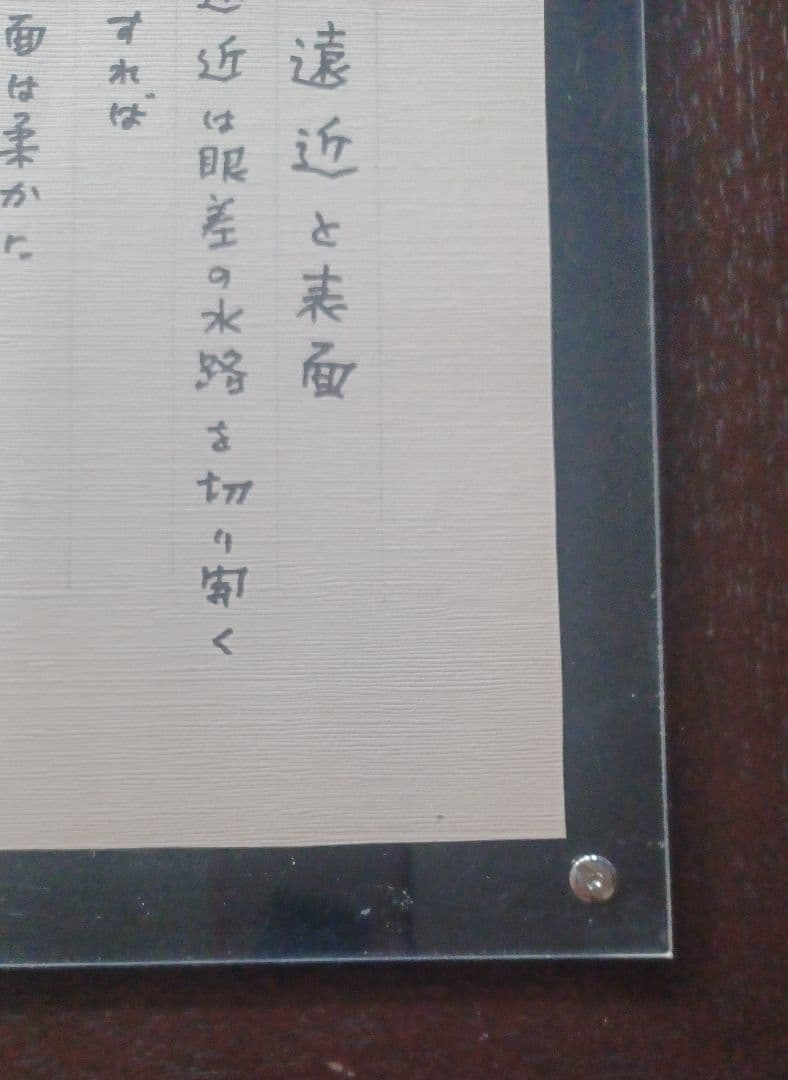 遠近と表面
近は眼差の水路を切り開く
すれば
面は柔かに